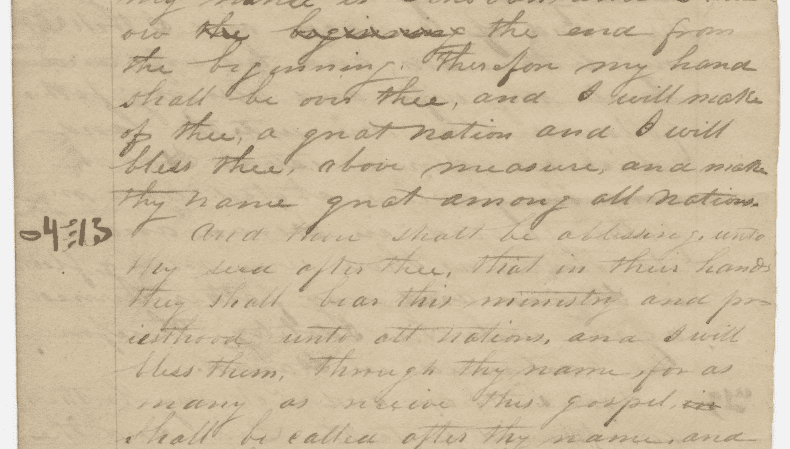 my name is
ow the beginning the end from
the beginning. Therefore my hand
shall be over thee, and I will make
of thee, a great nation and I will
bless thee, above measure, and make
thy name great among all nations.
04=13
And thou shalt be a blessing, unto
thy seed after thee, that in their hands
they shall bear this ministry and pr-
iesthood unto all nations, and I will
bless them, through thy name, for as
many as receive this gospel, in
shall be called after thy name, and